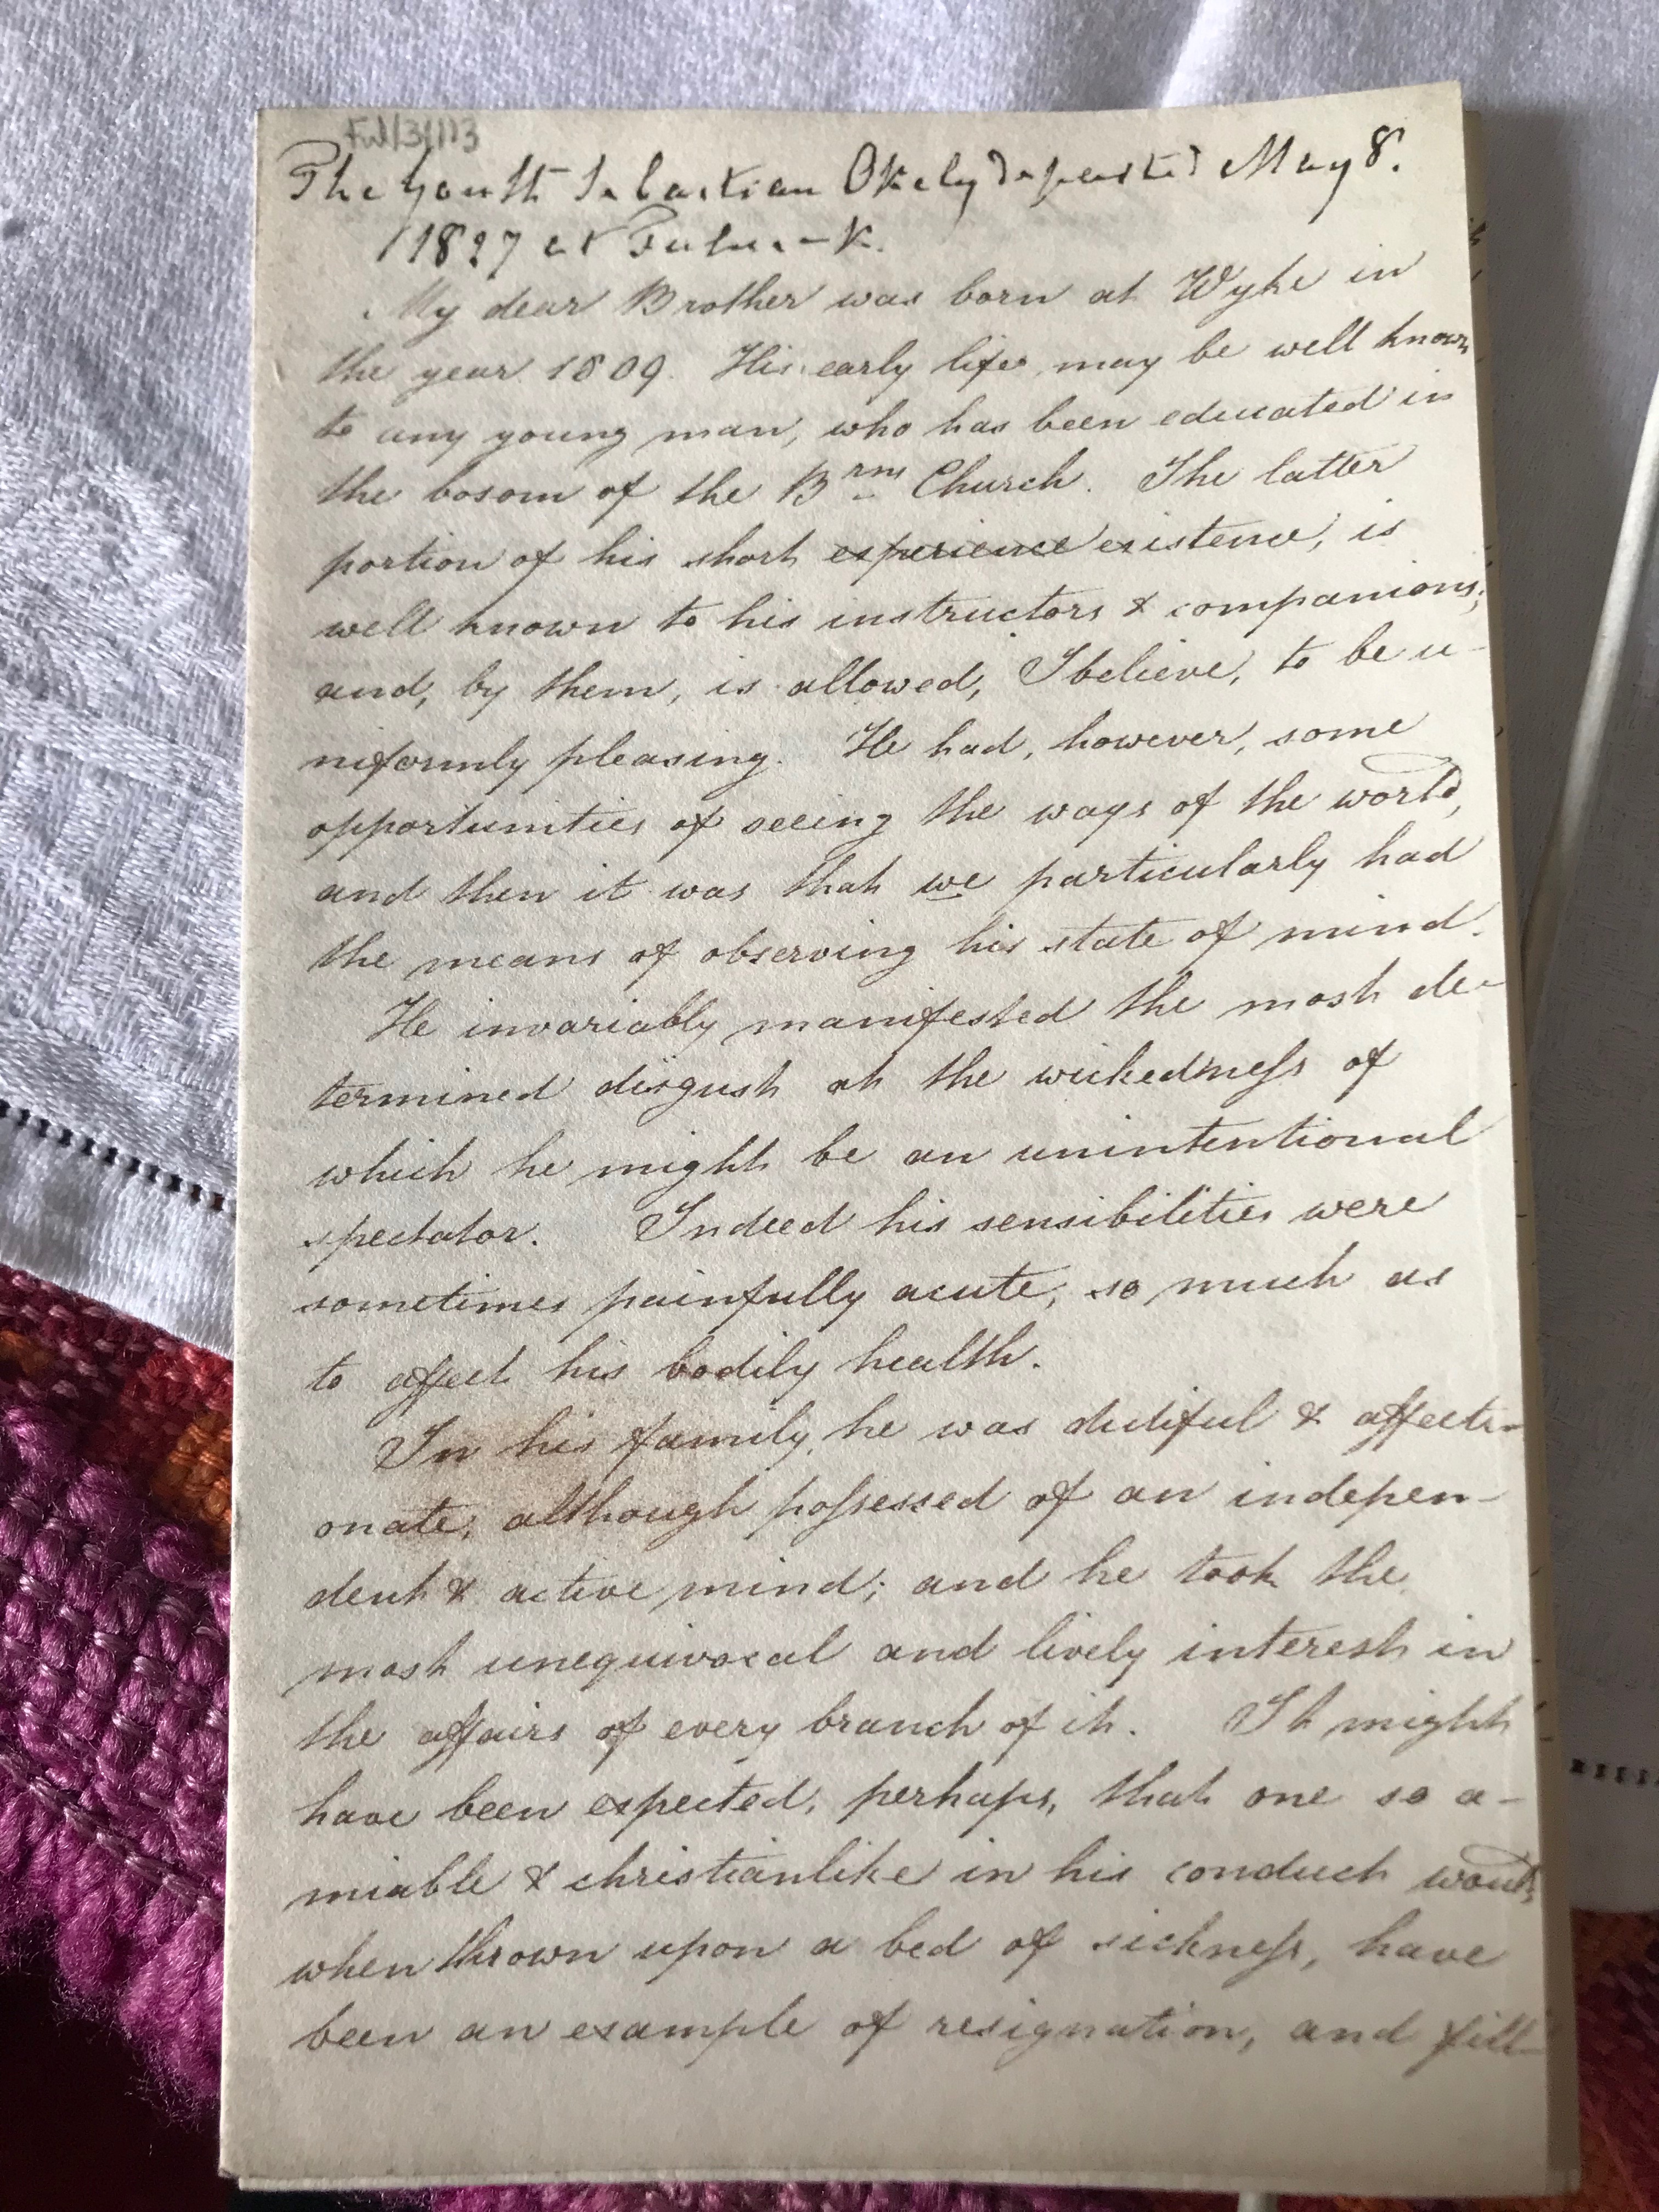 Ful/3/113
The Youth Sebastian Okely departed May 8.
1827 at Fulneck.
My dear Brother was born at Wyke in
the year 1809. His early life, may be well known
to any young man, who has been educated in
the bosom of the Brns Church. The latter
portion of his short experience existence, is
well known to his instructors & companions;
and, by them, is allowed, I believe, to be u-
niformly pleasing. He had, however, some
opportunities of seeing the ways of the world,
and then it was that we particularly had
the means of observing his state of mind.
He invariably manifested the most de-
termined disgust at the wickedness of
which he might be an unintentional
spectator. Indeed his sensibilities were
sometimes painfully acute, so much as
to affect his bodily health.
In his family, he was dutiful & affecti-
onate, although possessed of an indepen-
dent & active mind; and he took the
most unequivocal and lively interest in
the affairs of every branch of it. It might
have been expected, perhaps, that one so a-
miable & christianlike in his conduct would,
when thrown upon a bed of sickness, have
been an example of resignation, and fill-